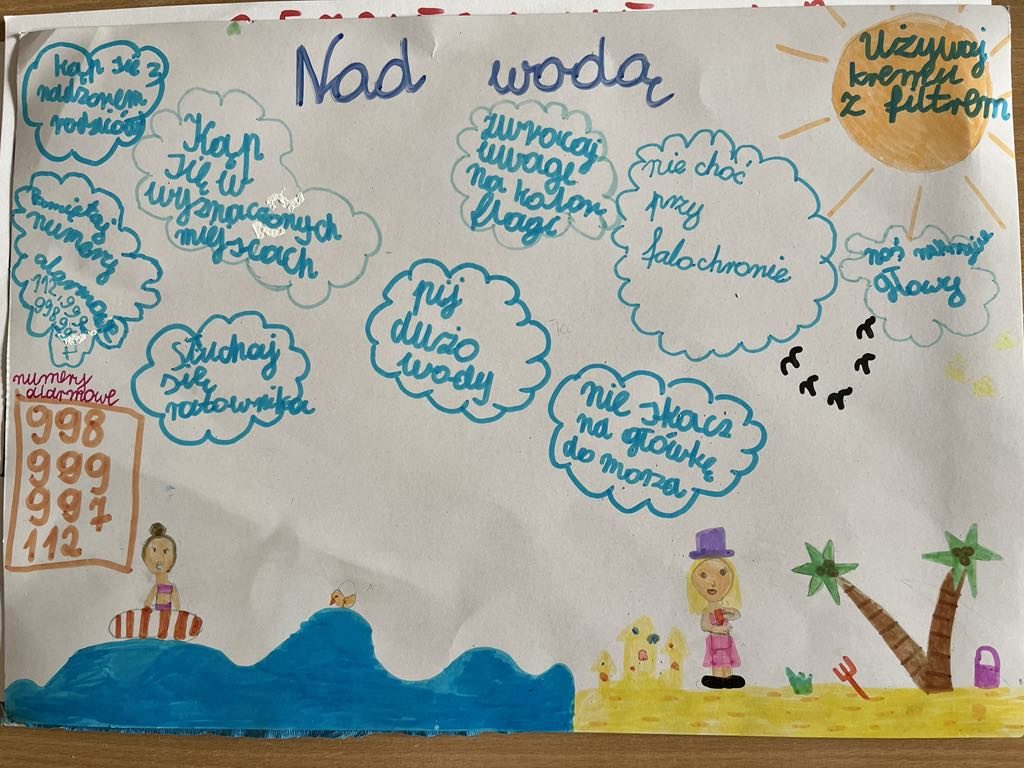 Nad wodą
Używaj
kremu
z filtrem
kąp się z
nadzorem
rodziców
Kąp
się w
wyznaczonych
miejscach
zwracaj
uwagę
na kolor
flagi
nie choć
przy
falochronie
noś nakrycie
głowy
Pamiętaj
numery
alarmowe
112, 99
998, 99
słuchaj
się
ratownika
pij
dużo
wody
nie skacz
na główkę
do morza
numery
alarmowe
998
999
997
112